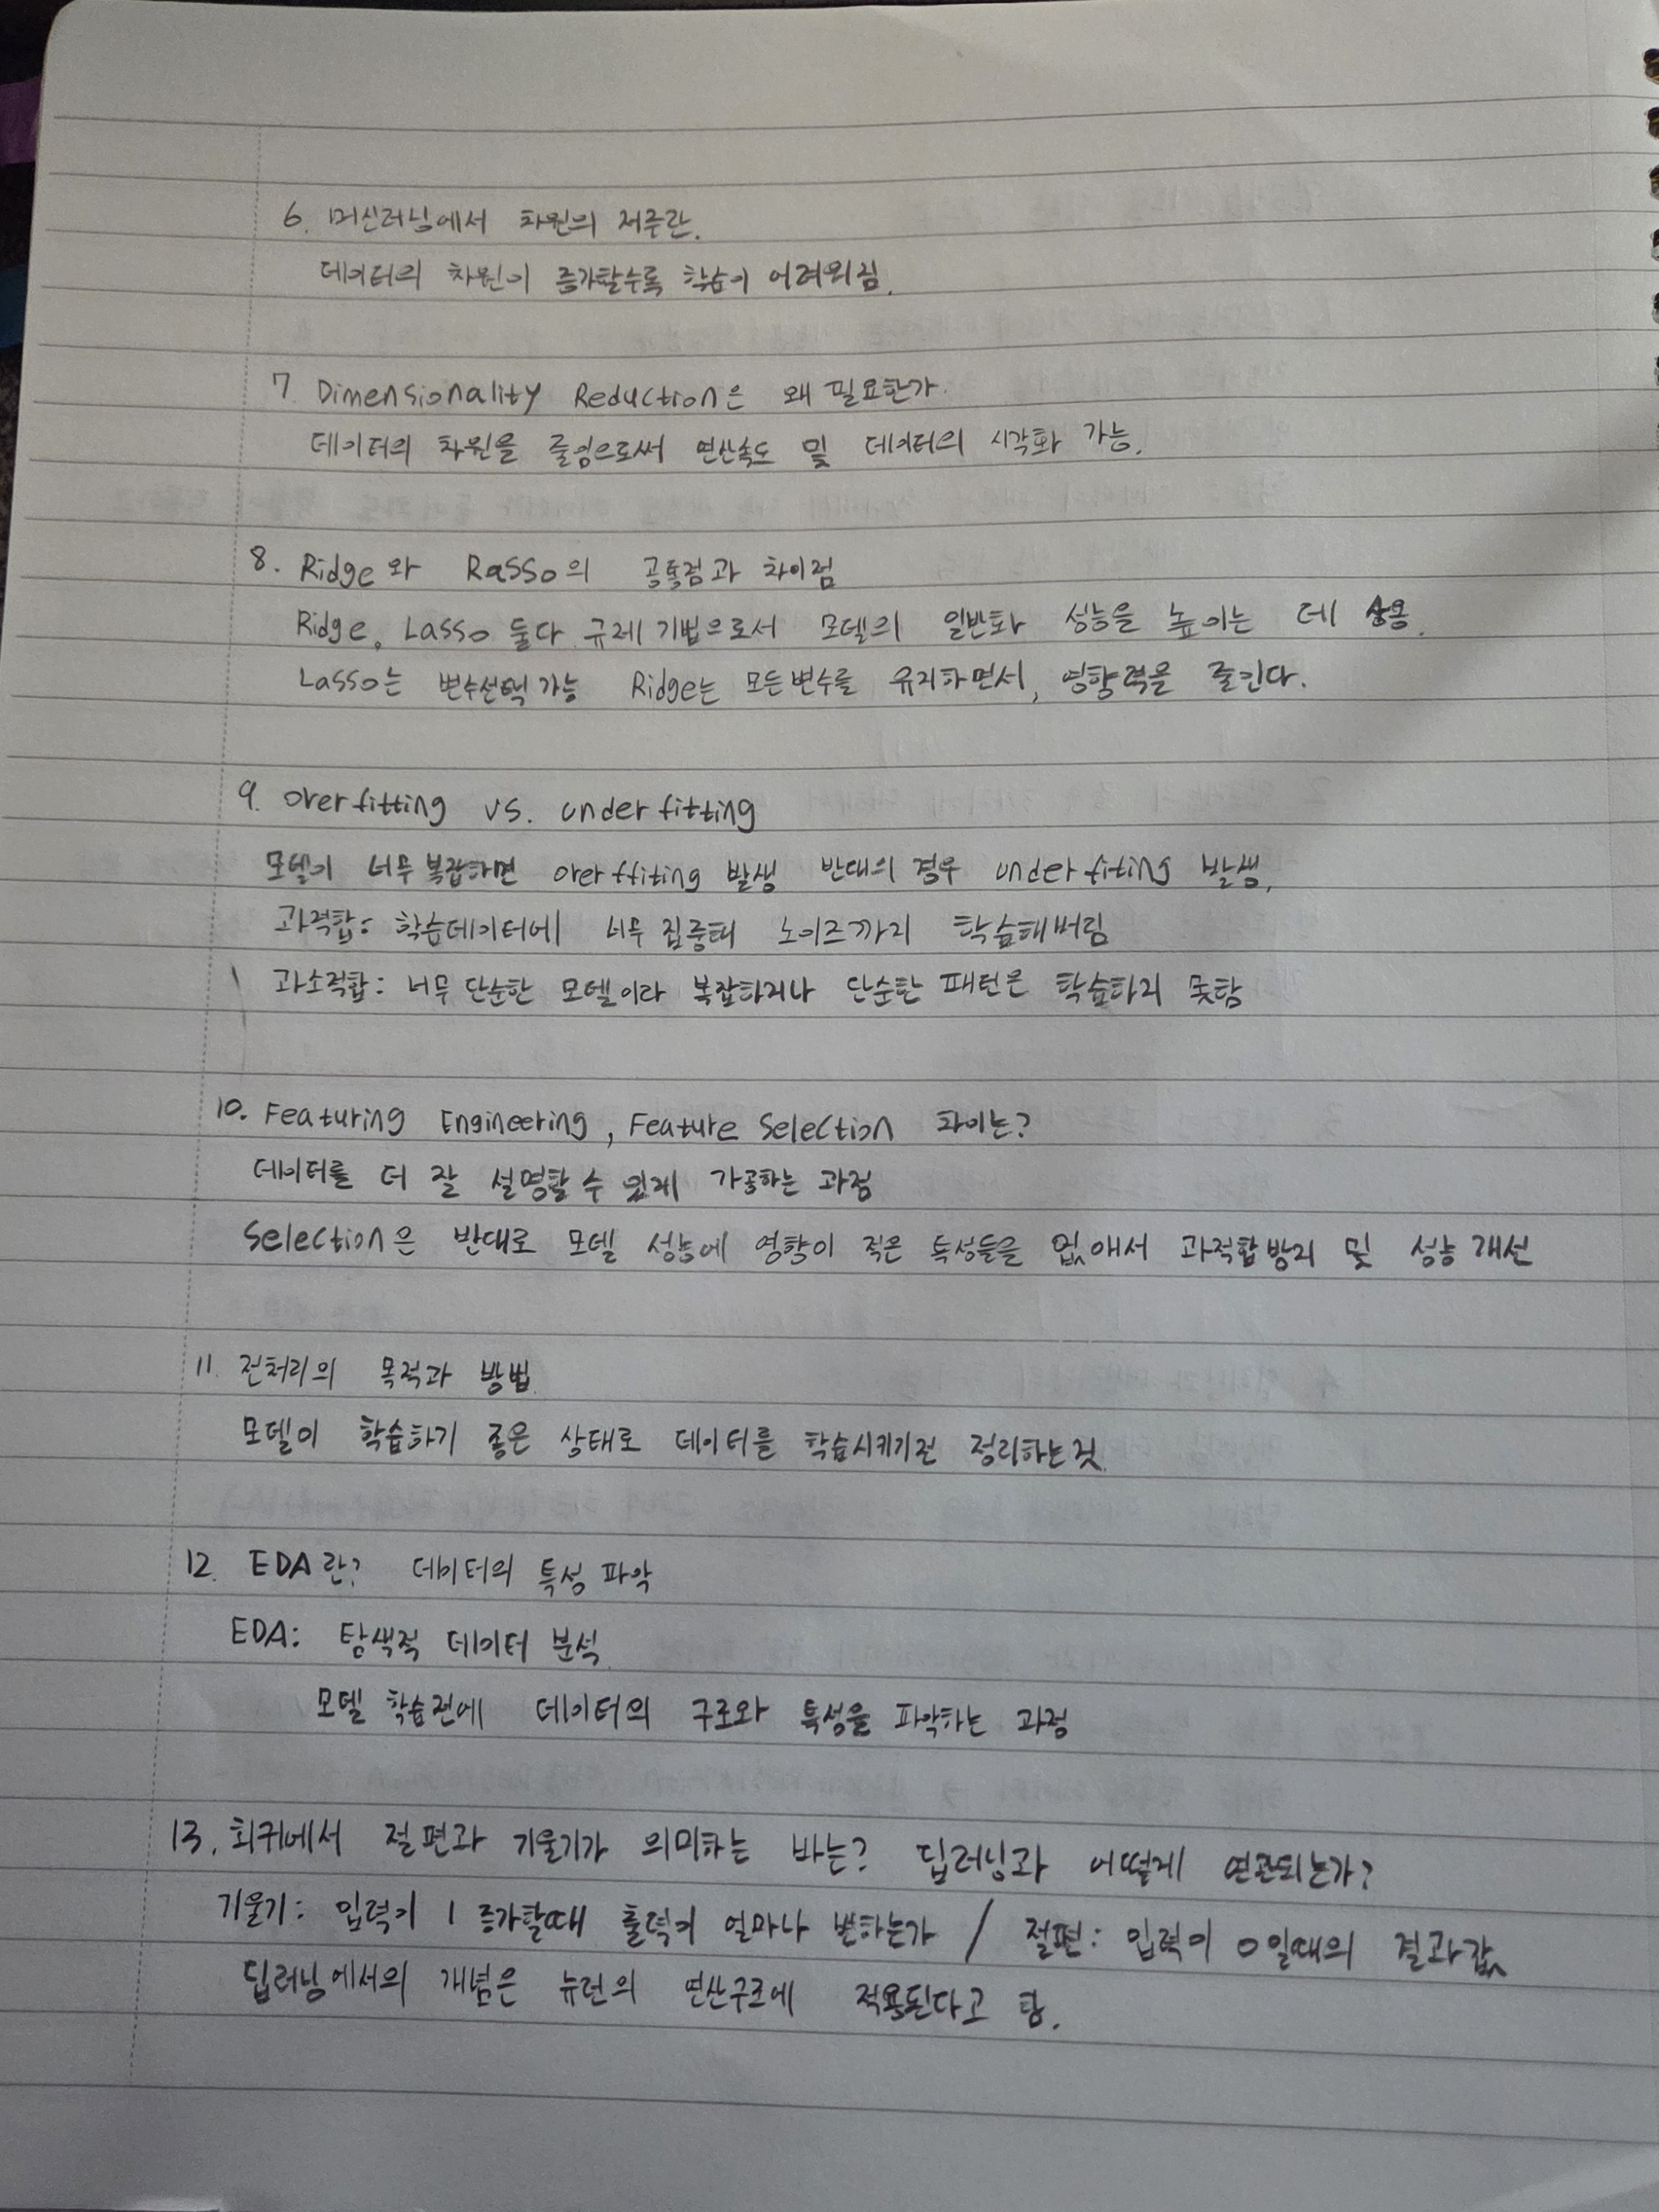 6. 머신러닝에서 차원의 저주란.
데이터의 차원이 증가할수록 학습이 어려워짐.
7. Dimensionality Reduction은 왜 필요한가.
데이터의 차원을 줄임으로써 연산속도 및 데이터의 시각화 가능.
8. Ridge와 Rasso의 공통점과 차이점
Ridge, Lasso 둘다 규제 기법으로서 모델의 일반화 성능을 높이는 데 사용.
Lasso는 변수선택 가능 Ridge는 모든변수를 유지하면서, 영향력을 줄인다.
9. Overfitting vs. underfitting
모델이 너무 복잡하면 overffiting 발생 반대의 경우 underfiting 발생.
과적합: 학습데이터에 너무 집중해 노이즈까지 학습해버림
과소적합: 너무 단순한 모델이라 복잡하거나 단순한 패턴은 학습하지 못함
10. Featuring Engineering, Feature Selection 차이는?
데이터를 더 잘 설명할 수 있게 가공하는 과정
Selection은 반대로 모델 성능에 영향이 적은 특성들을 없애서 과적합 방지 및 성능 개선
11. 전처리의 목적과 방법.
모델이 학습하기 좋은 상태로 데이터를 학습시키기전 정리하는것.
12. EDA란? 데이터의 특성 파악
EDA: 탐색적 데이터 분석.
모델 학습전에 데이터의 구조와 특성을 파악하는 과정
13. 회귀에서 절편과 기울기가 의미하는 바는? 딥러닝과 어떻게 연관되는가?
기울기: 입력이 1 증가할때 출력이 얼마나 변하는가 / 절편: 입력이 0일때의 결과값
딥러닝에서의 개념은 뉴런의 연산구조에 적용된다고 함.